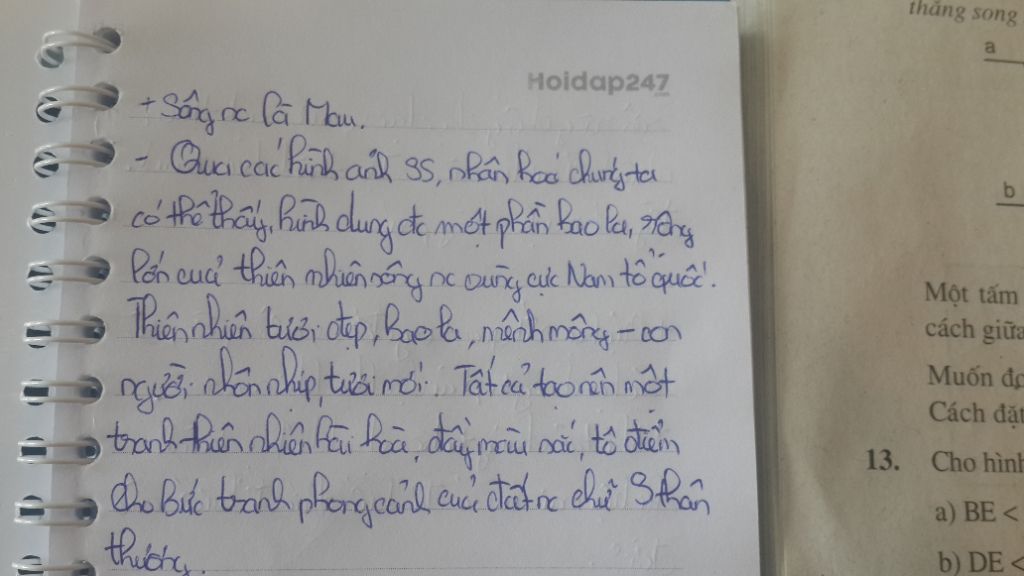 Hoidap247
+ Sông nc Cà Mau.
- Qua các hình ảnh SS, nhân hoá chúng ta
có thể thấy, hình dung đc một phần bao la, rộng
lớn của thiên nhiên sông nc vùng cực Nam tổ quốc.
Thiên nhiên tươi đẹp, bao la, mênh mông - con
người nhộn nhịp, tươi mới. Tất cả tạo nên một
tranh thiên nhiên hài hoà, đầy màu sắc, tô điểm
cho bức tranh phong cảnh của đất nc chữ S thân
thương.
thẳng song
a
b
Một tấm
cách giữa
Muốn đọ
Cách đặt
13. Cho hình
a) BE <
b) DE <